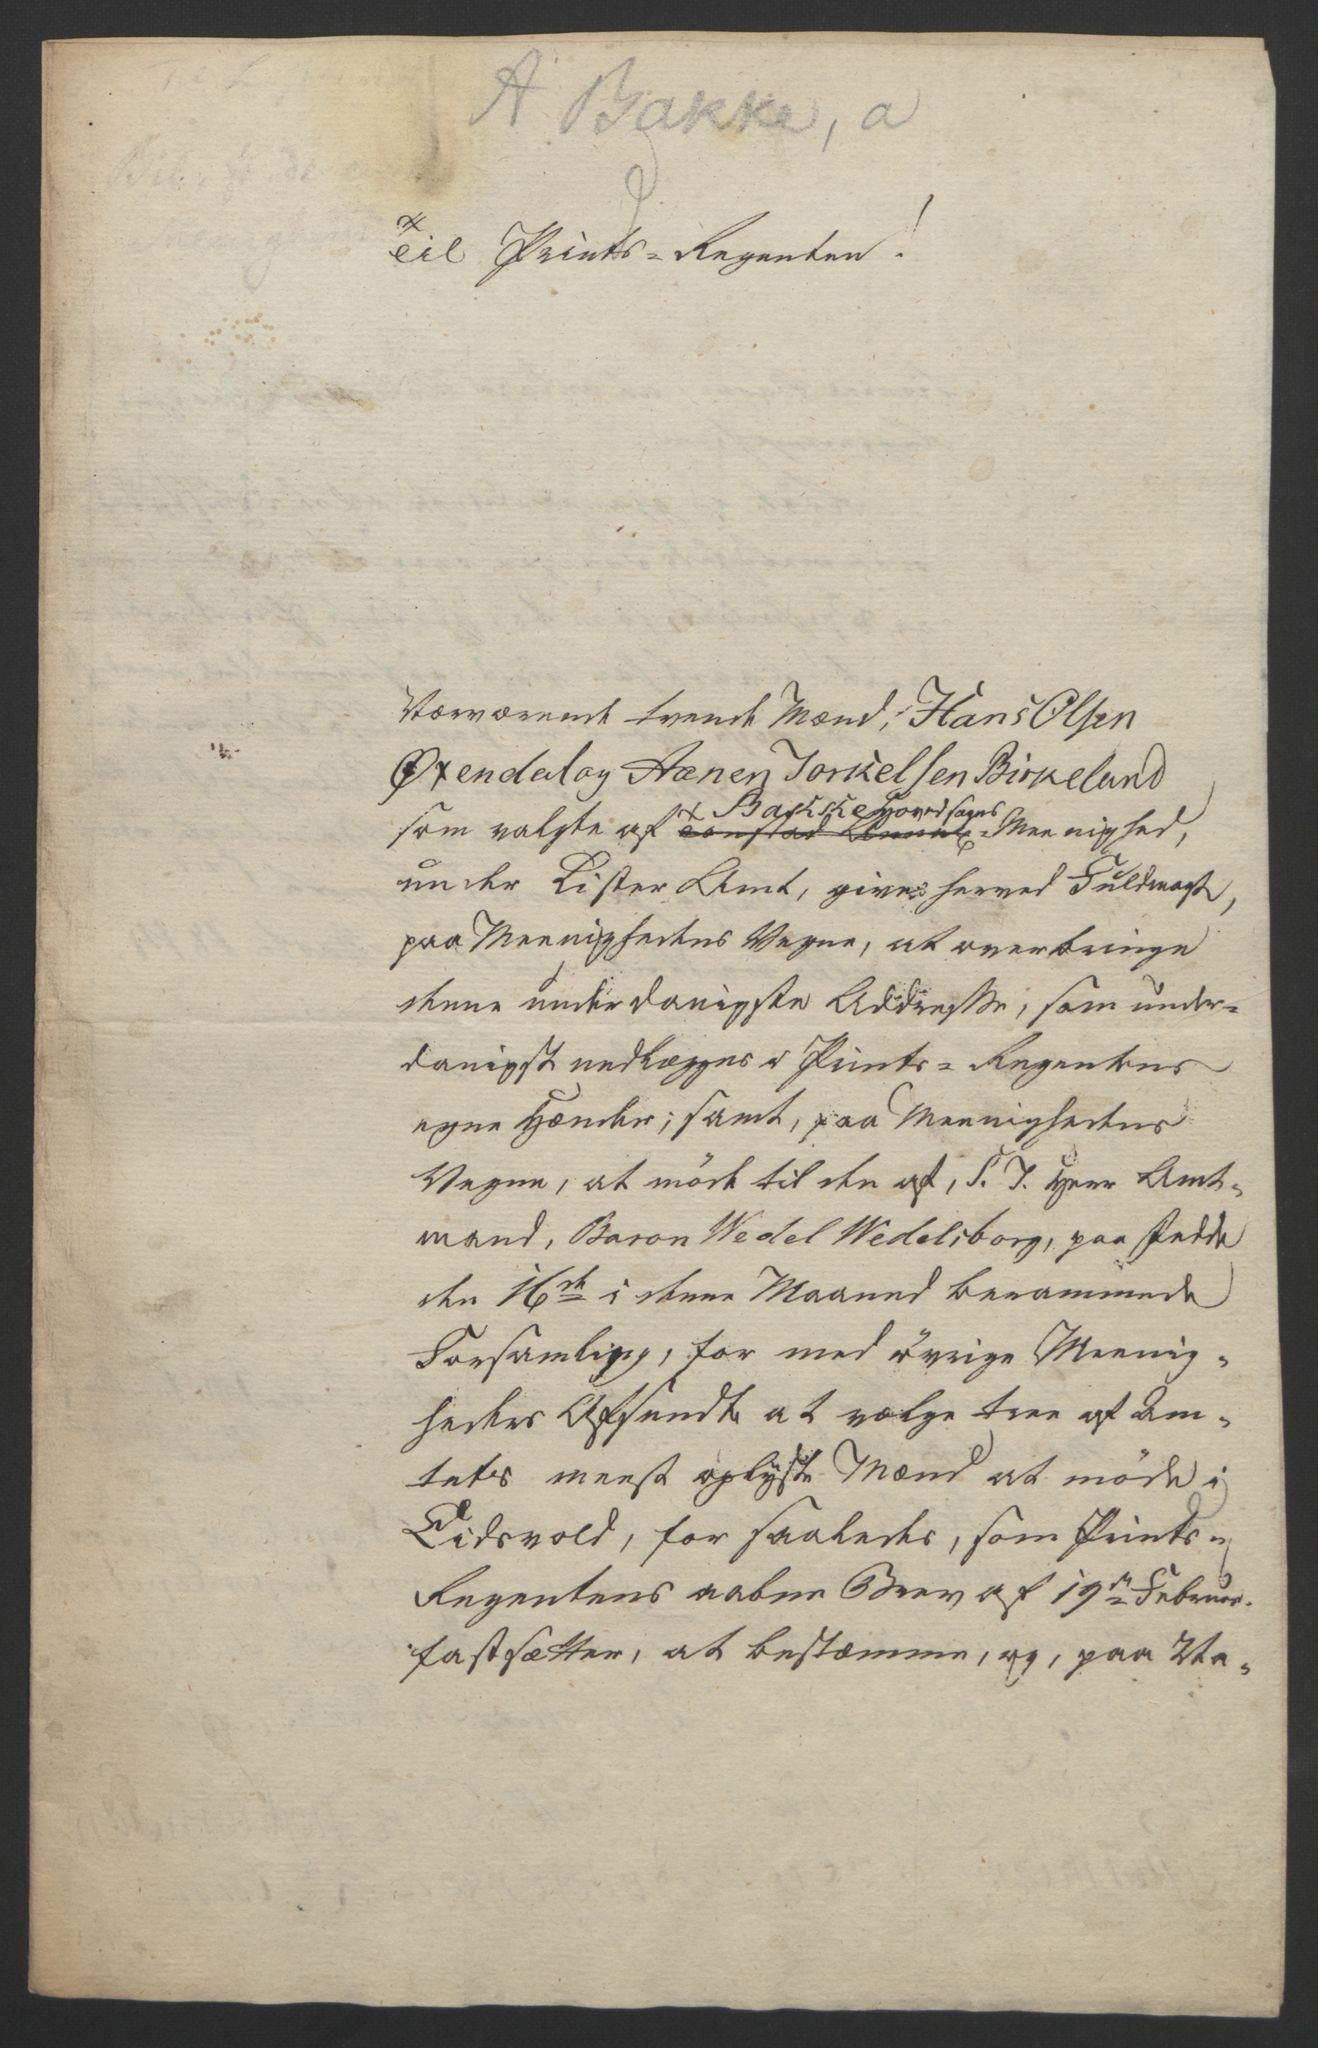 A Bakke, a
Til Prints-Regenten!
Værværende tvende Mænd, Hans Olsen
Øxendal og Aanen Torkelsen Birkeland
Bakke Hovedsogns
som valgte af Tonstad Annex Meenighed,
under Lister Amt, gives herved Fuldmagt,
paa Meenighedens Vegne, at overbringe
denne underdanigste Addresse, som under-
danigst nedlægges i Prints-Regentens
egne Hænder; samt, paa Meenighedens
Vegne, at möde til den af, S. T. Herr Amt-
mand, Baron Wedel Wedelsborg, paa Fedde
den 16de i denne Maaned berammede
Forsamling, for med övrige Meenig-
heders Afsendte at vælge tree af Am-
tets meest oplyste Mænd at möde i
Eidsvold, for saaledes, som Prints-
Regentens aabne Brev af 19de Februar
fastsætter, at bestemme, og, paa Sta-